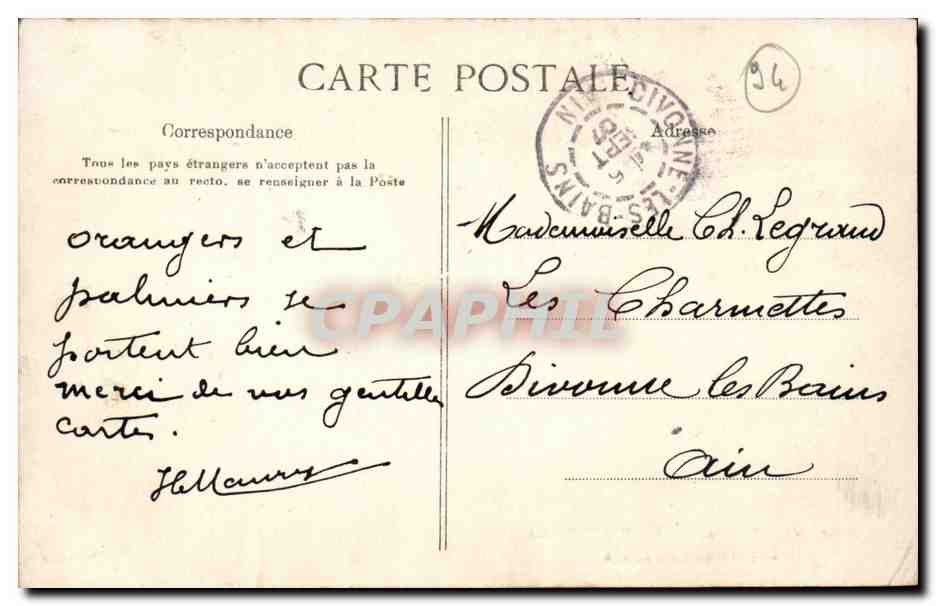 CARTE POSTALE
94
Correspondance
Adresse
Tous les pays étrangers n'acceptent pas la
correspondance au recto, se renseigner à la Poste
DIVONNE-LES-BAINS
AIN
SEPT
orangers et
palmiers se
portent bien
merci de vos gentilles
cartes.
Mademoiselle Ch. Legrand
Les Charmettes
Divonne les Bains
Ain
CPAPHIL